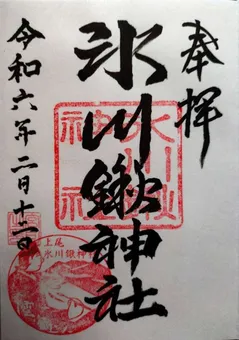 奉拝
氷川鍬神社
令和六年二月十二日
上尾
氷川鍬神社